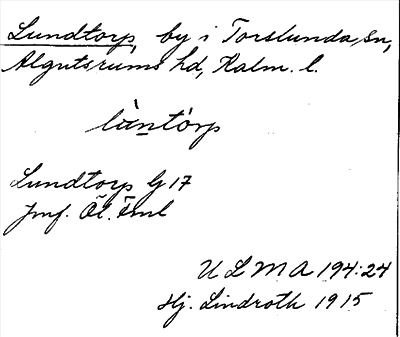 Lundtorp, by i Torslunda sn,
Algutsrums hd, Kalm. l.
lùntórp
Lundtorp G 17
Jmf. Öl. Eml
U L M A 194:24
Hj. Lindroth 1915